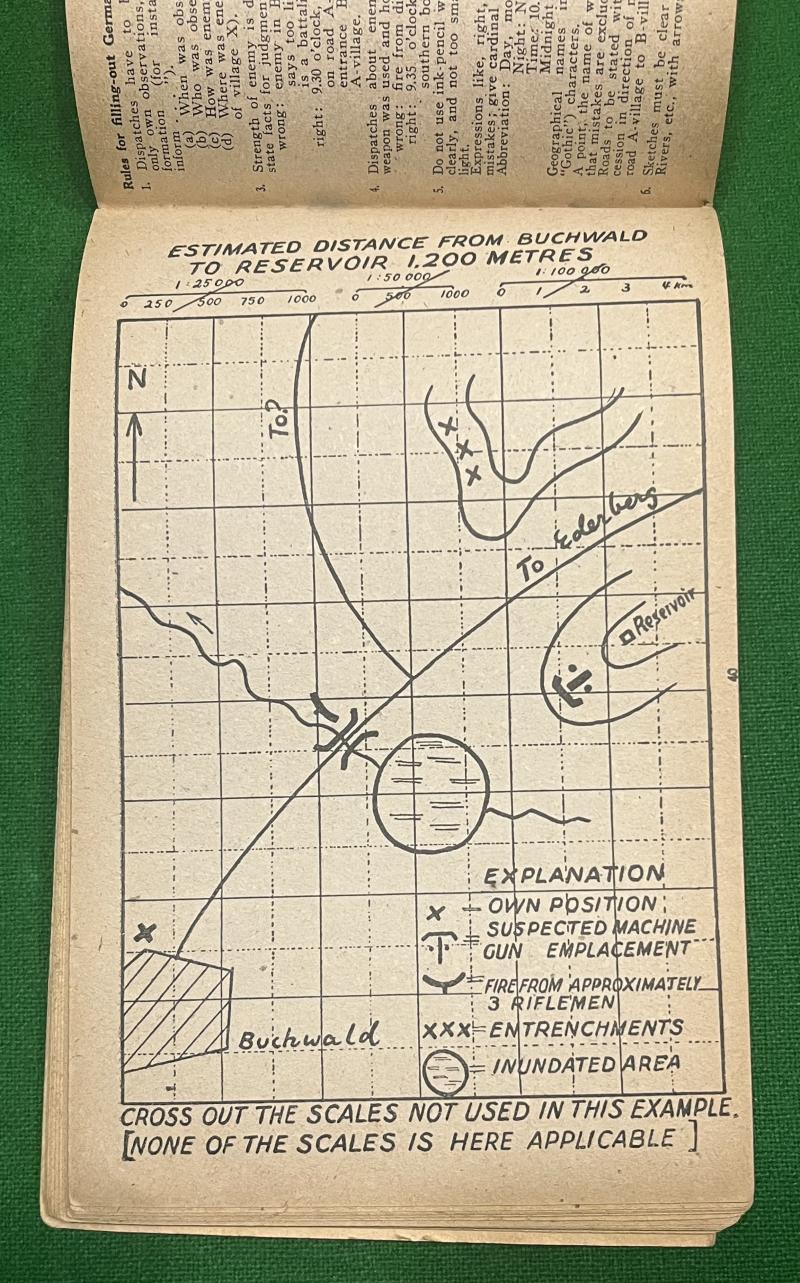 Rules for filling-out Germa
1. Dispatches have to
only own observations,
(for insta
formation "),
inform:
(a) When was obs
(b) Who was obse
(c) How was enemy
(d) Where was ene
of village X),
3. Strength of enemy is d
state facts for judgment
wrong: enemy in B
says too li
is a battali
right: 9.30 o'clock,
on road A-
entrance B
A-village.
4. Dispatches about enem
weapon was used and ho
wrong: fire from di
right: 9.35 o'clock
southern bo
5. Do not use ink-pencil w
clearly, and not too sma
light.
Expressions like, right,
mistakes; give cardinal
Abbreviation: Day, mo
Night: N
Time: 10.
Midnight
Geographical names in
"Gothic") characters.
A point, the name of w
that mistakes are exclud
Roads to be stated wit
cession in direction of
road A-village to B-vill
6. Sketches must be clear
Rivers, etc., with arrow
ESTIMATED DISTANCE FROM BUCHWALD
TO RESERVOIR 1.200 METRES
1:25000 1:50 000 1:100 000
0 250 500 750 1000 0 500 1000 0 1 2 3 4 Km
N
To?
To Ederberg
Reservoir
EXPLANATION
x = OWN POSITION
= SUSPECTED MACHINE
GUN EMPLACEMENT
= FIRE FROM APPROXIMATELY
3 RIFLEMEN
xxx = ENTRENCHMENTS
= INUNDATED AREA
x
Buchwald
CROSS OUT THE SCALES NOT USED IN THIS EXAMPLE.
[NONE OF THE SCALES IS HERE APPLICABLE]